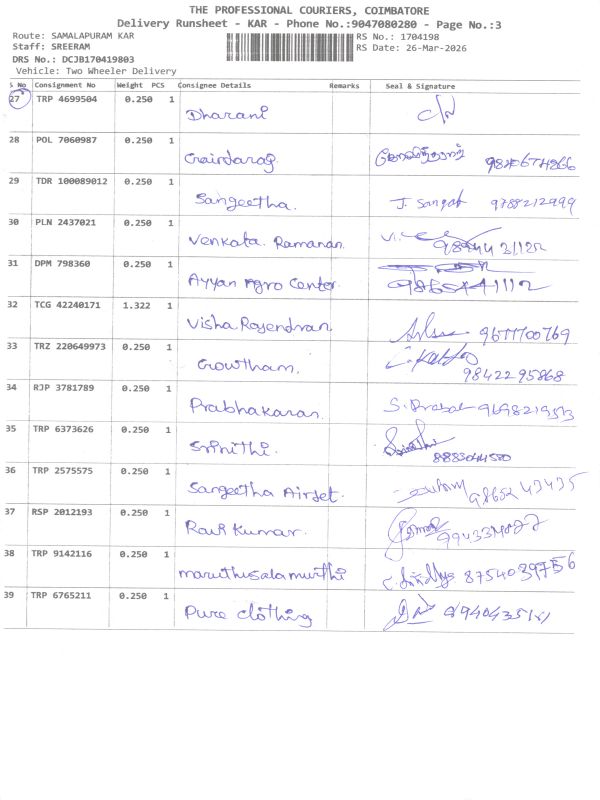 THE PROFESSIONAL COURIERS, COIMBATORE
Delivery Runsheet - KAR - Phone No.:9047080280 - Page No.:3
Route: SAMALAPURAM KAR RS No.: 1704198
Staff: SREERAM RS Date: 26-Mar-2026
DRS No.: DCJB170419803
Vehicle: Two Wheeler Delivery
S No Consignment No Weight PCS Consignee Details Remarks Seal & Signature
27 TRP 4699504 0.250 1
Dharani
28 POL 7060987 0.250 1
Govindaraj
29 TDR 100089012 0.250 1
Sangeetha. J. Sangat 9788212999
30 PLN 2437021 0.250 1
Venkata Ramanan.
31 DPM 798360 0.250 1
Ayyan Agro Center.
32 TCG 42240171 1.322 1
Visha Rajendran 9677700769
33 TRZ 220649973 0.250 1
Gowtham. 9842295868
34 RJP 3781789 0.250 1
Prabhakaran. S. Prabak
35 TRP 6373626 0.250 1
Srinithi.
36 TRP 2575575 0.250 1
Sangeetha AirJet. 9865243435
37 RSP 2012193 0.250 1
Ravi Kumar.
38 TRP 9142116 0.250 1
maruthusalamurthi 8754039756
39 TRP 6765211 0.250 1
Pure Clothing